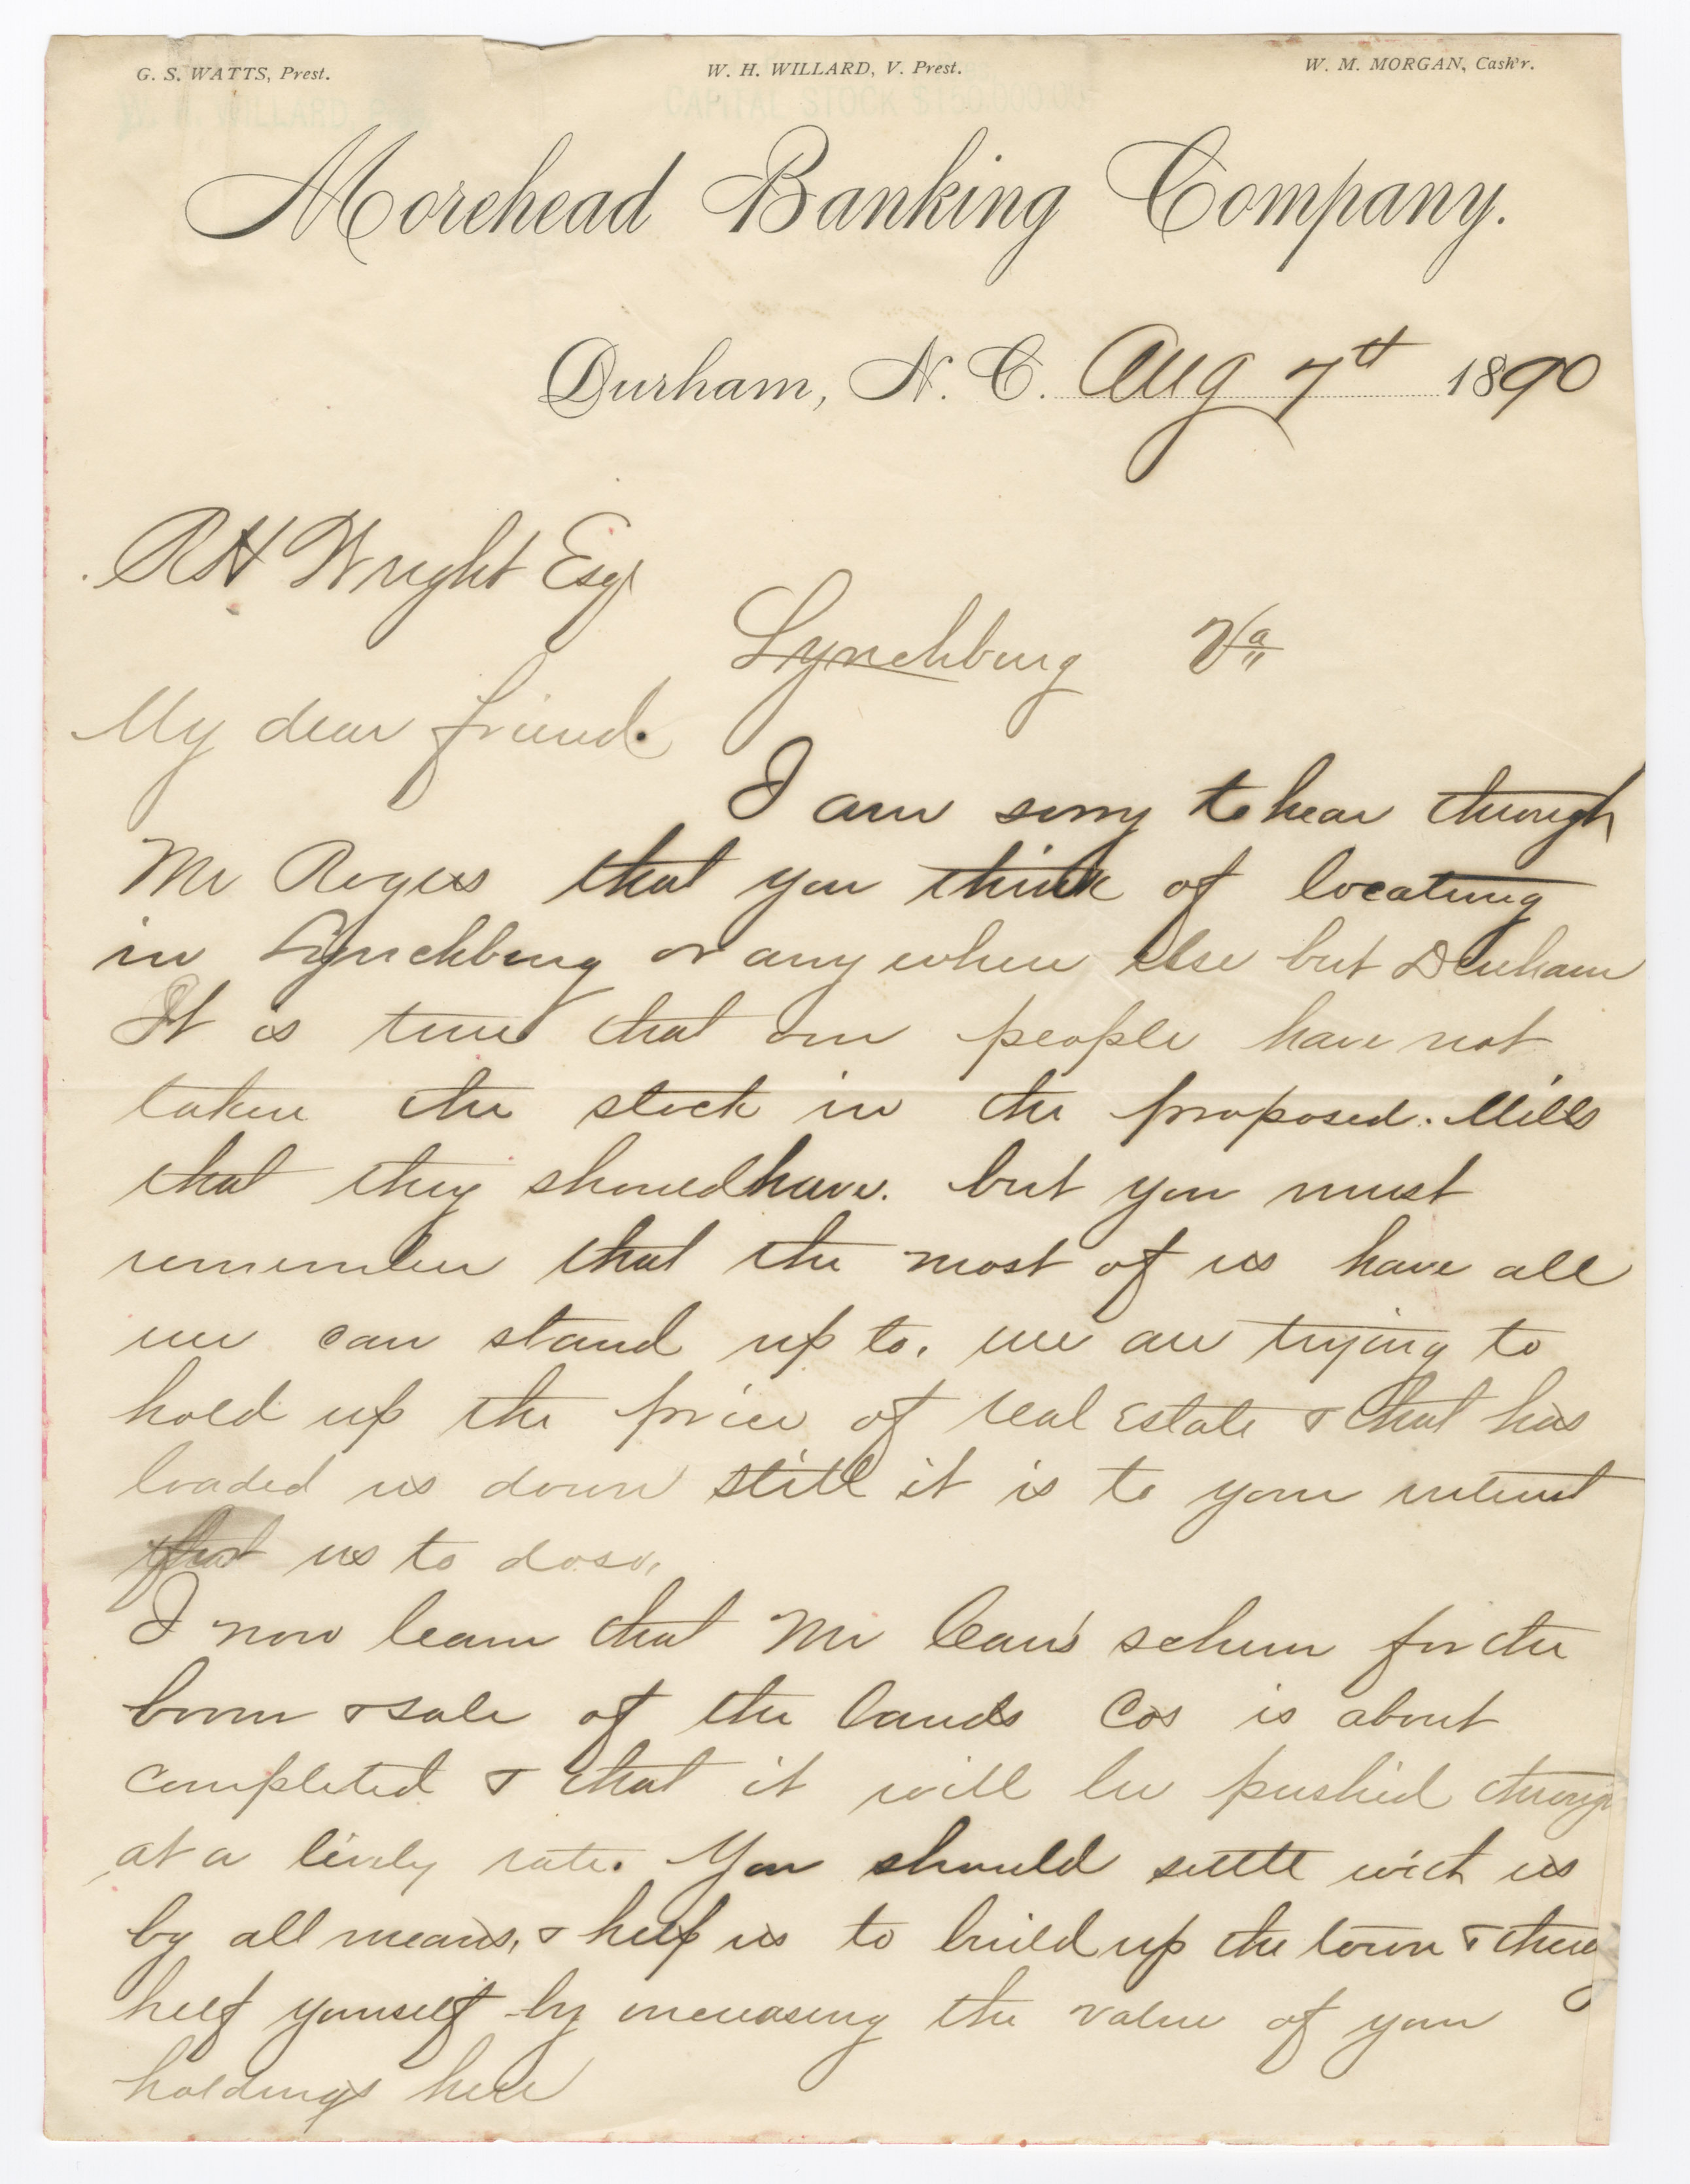 G. S. WATTS, Prest. W. H. WILLARD, V. Prest. W. M. MORGAN, Cash'r.
W. H. WILLARD, CAPITAL STOCK $150,000.00
Morehead Banking Company.
Durham, N. C. Aug 7th 1890
RH Wright Esq
Lynchburg Va
My dear friend.
I am sorry to hear through
Mr Rogers that you think of locating
in Lynchburg or any where else but Durham
It is true that our people have not
taken the stock in the proposed. Mills
that they should have. but you must
remember that the most of us have all
we can stand up to. we are trying to
hold up the price of real Estate & that has
loaded us down still it is to your interest
for us to do so.
I now learn that Mr Carr's scheme for the
boom & sale of the lands Cos is about
completed & that it will be pushed through
at a lively rate. You should settle with us
by all means, & help us to build up the town &
help yourself by increasing the value of your
holdings here